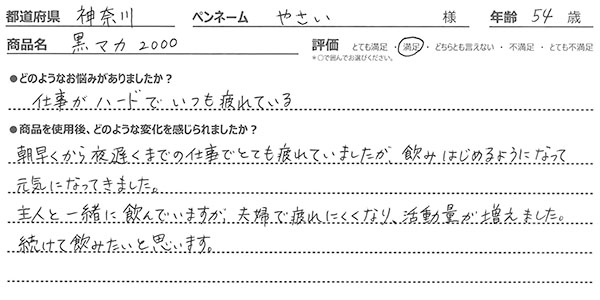 都道府県 神奈川 ペンネーム やさい 様 年齢 54 歳
商品名 黒マカ2000 評価 とても満足 ・ 満足 ・ どちらとも言えない ・ 不満足 ・ とても不満足
*○で囲んでお選びください。
●どのようなお悩みがありましたか？
仕事がハードでいつも疲れている
●商品を使用後、どのような変化を感じられましたか？
朝早くから夜遅くまでの仕事でとても疲れていましたが、飲みはじめるようになって
元気になってきました。
主人と一緒に飲んでいますが、夫婦で疲れにくくなり、活動量が増えました。
続けて飲みたいと思います。